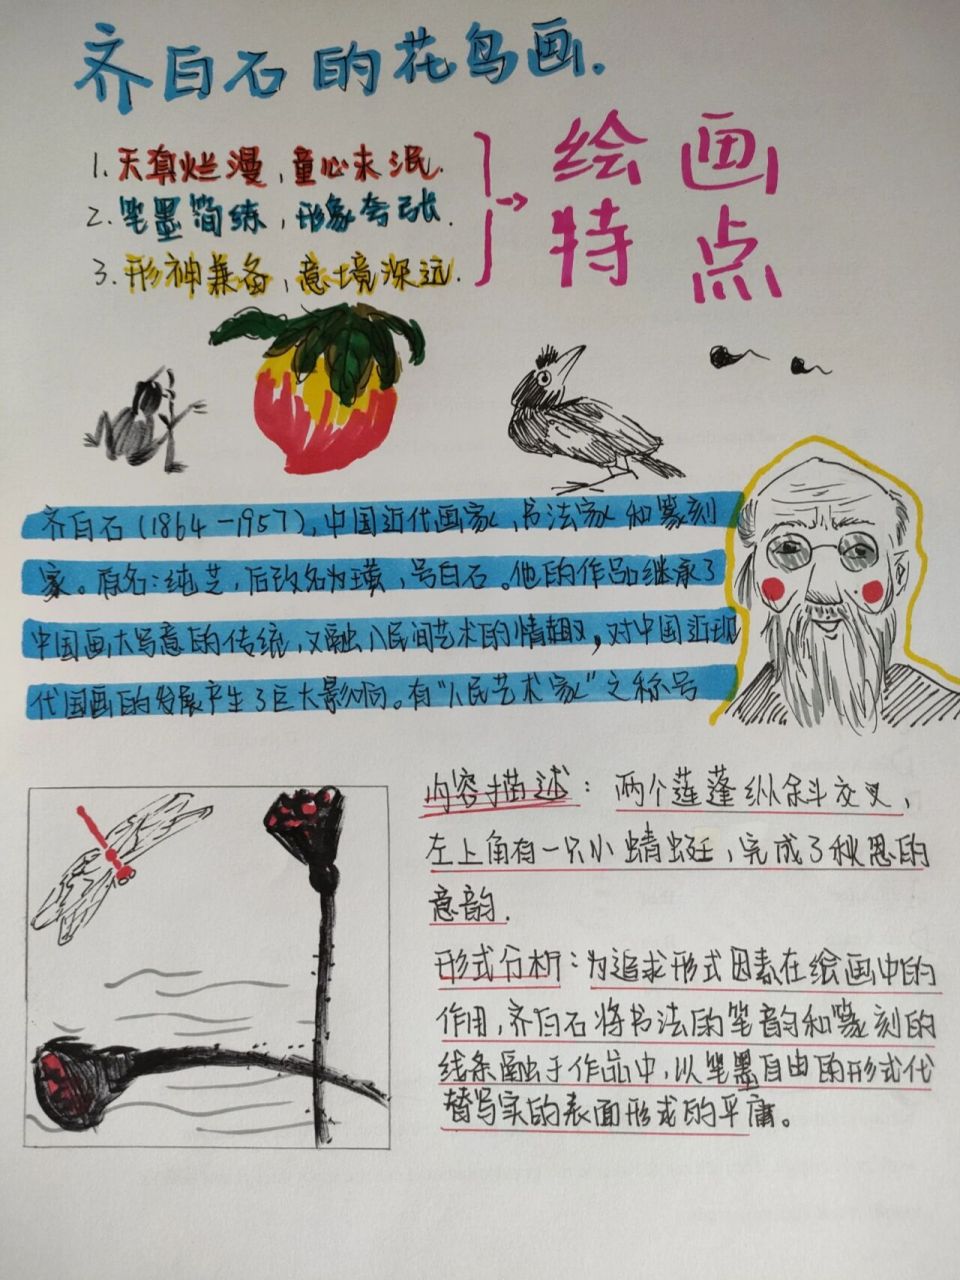 齐白石的花鸟画.
1.天真烂漫,童心未泯.
2.笔墨简练,形象夸张.
3.形神兼备,意境深远.
绘画
特点
齐白石(1864-1957),中国近代画家,书法家和篆刻
家。原名:纯芝,后改名为璜,号白石。他的作品继承了
中国画大写意的传统,又融入民间艺术的情趣,对中国近现
代国画的发展产生了巨大影响。有“人民艺术家”之称号
内容描述:两个莲蓬纵斜交叉,
左上角有一只小蜻蜓,完成了秋思的
意韵.
形式分析:为追求形式因素在绘画中的
作用,齐白石将书法的笔韵和篆刻的
线条融于作品中,以笔墨自由的形式代
替写实的表面形式的平庸。